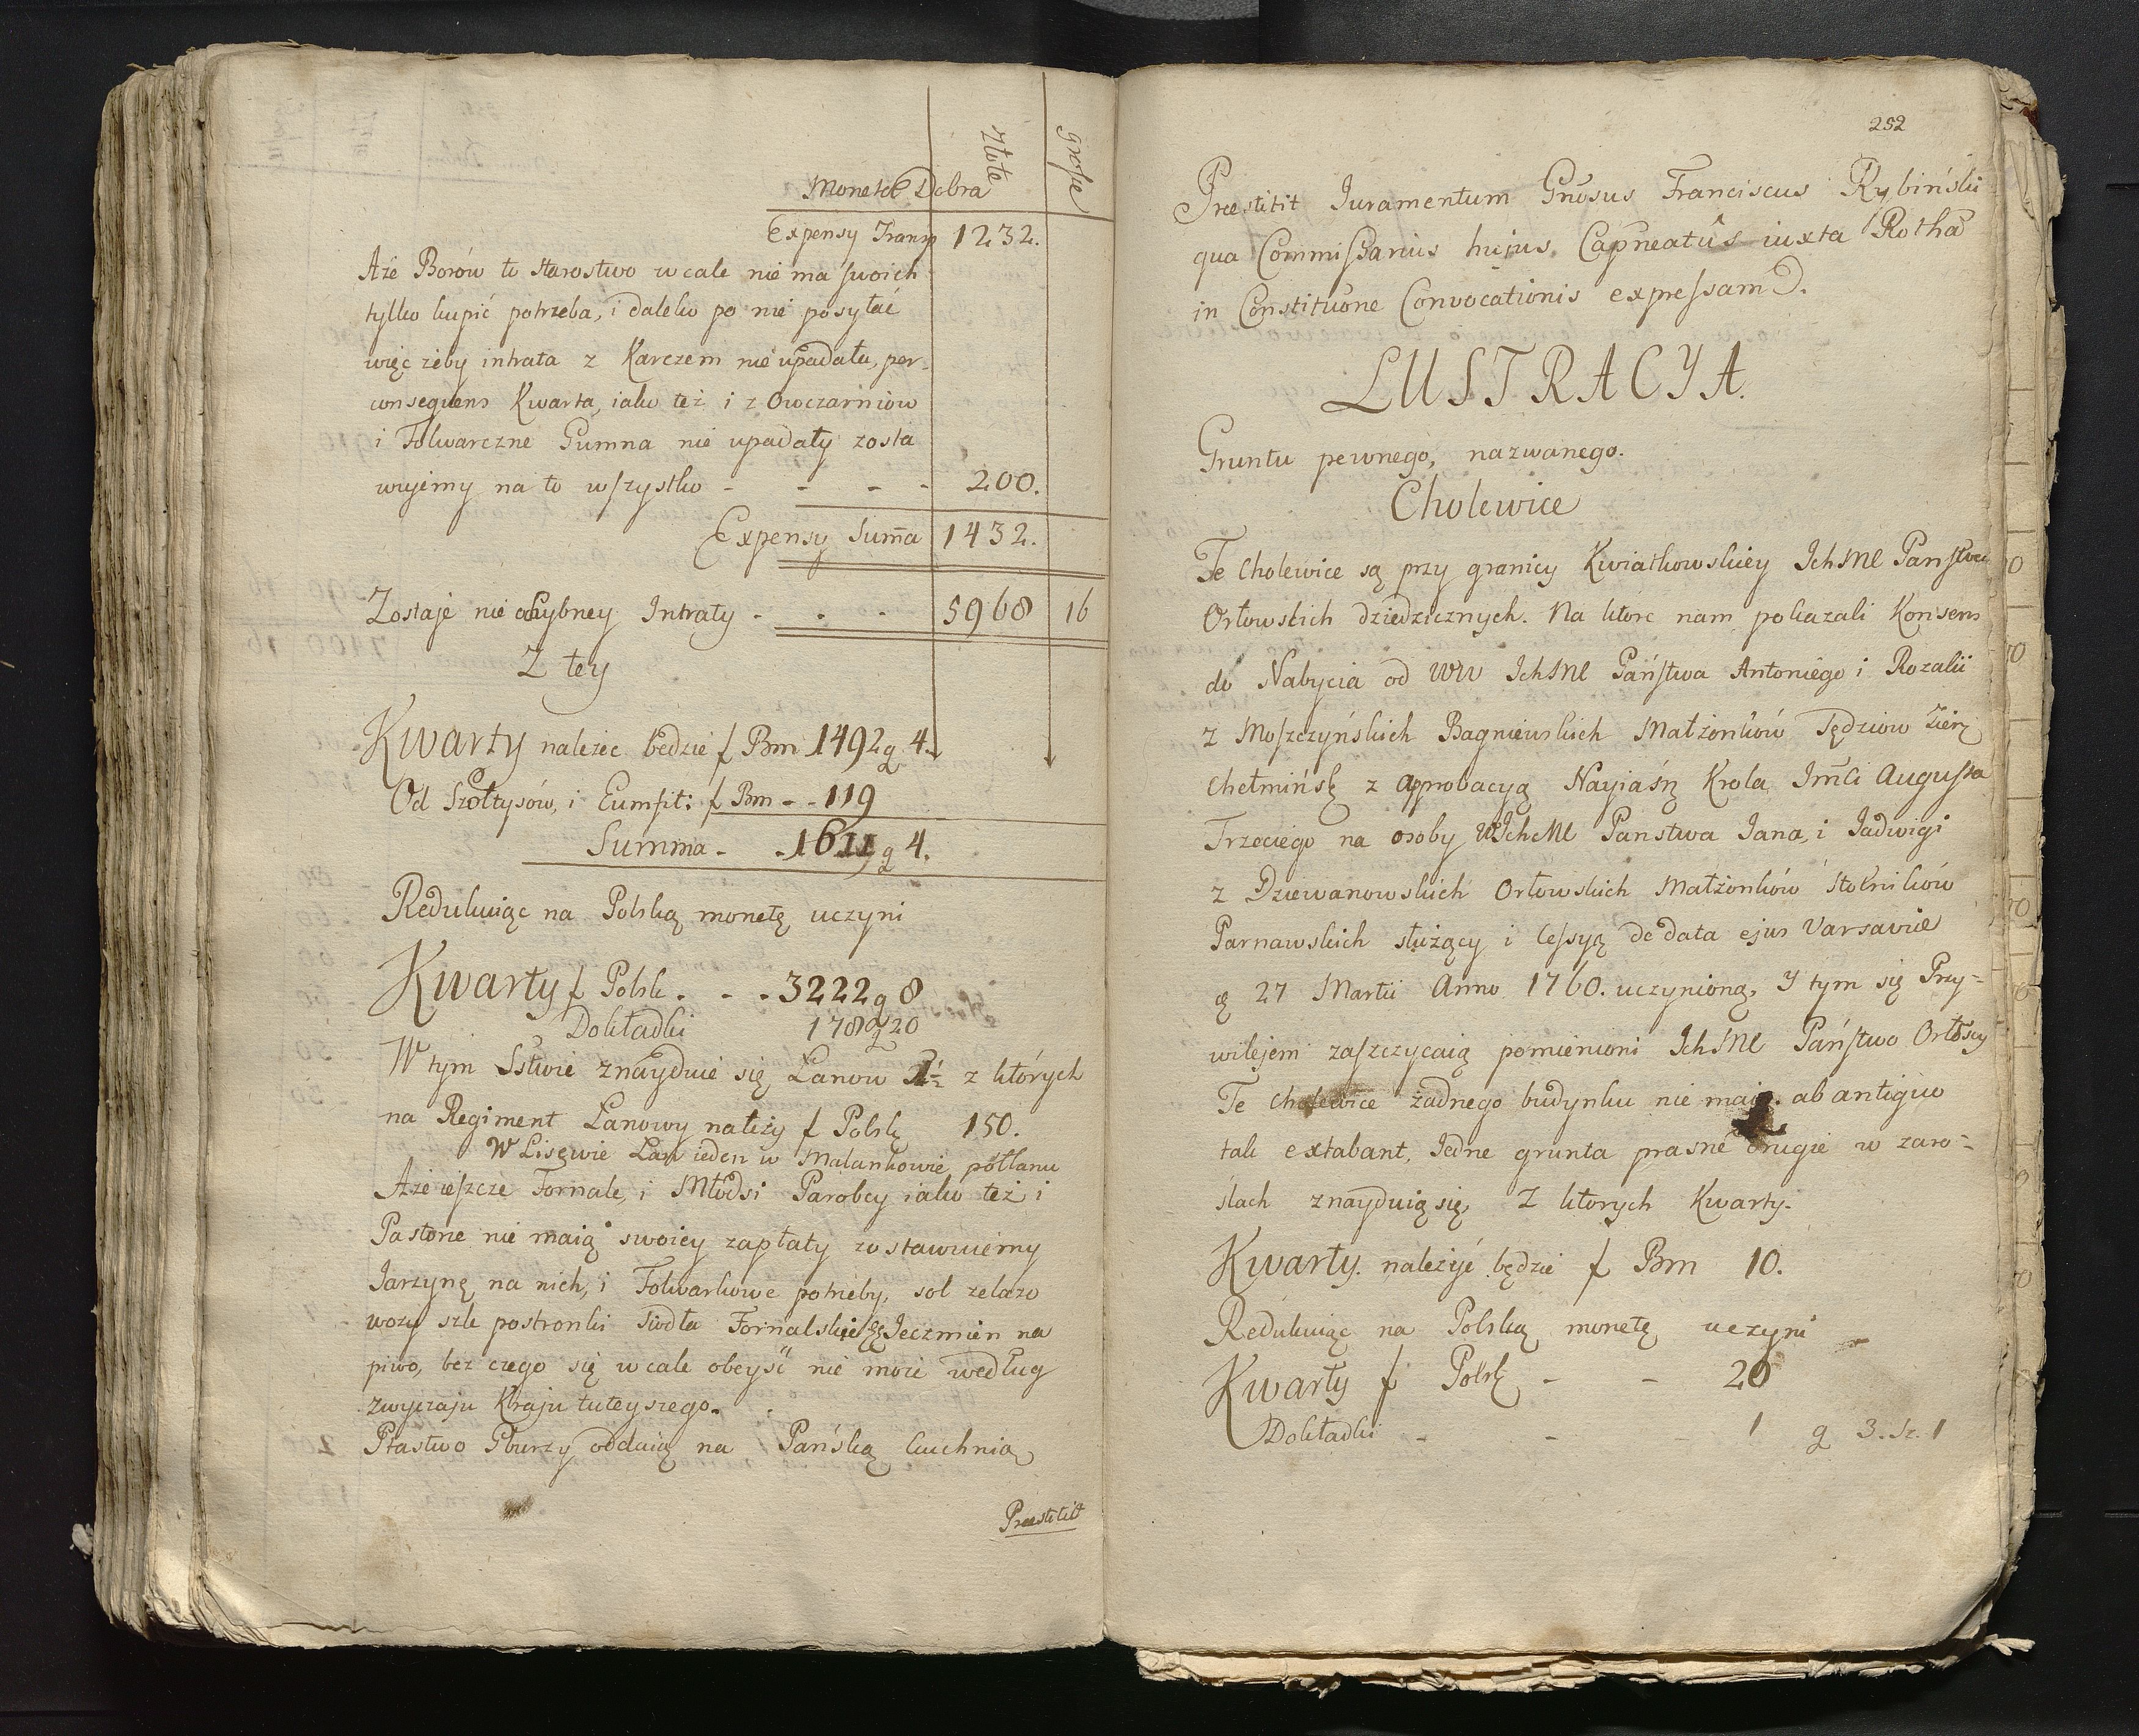 złote
grosze
Moneta Dobra
Expensy Transp 1232.
Aże Borów to Starostwo wcale nie ma swoich
tylko kupić potrzeba, i daleko po nie posyłać
więc żeby intrata z Karczem nie upadała, per
consequens Kwarta, iako też i z Owczarniow
i Folwarczne Gumna nie upadały zosta
wujemy na to wszystko - - - - 200.
Expensy Sum̃a 1432.
Zostaje nie ochybney Intraty - - - 5968 16
Z tey
Kwarty należec będzie f Bm 1492 g 4.
Od Szołtysów, i Eumfit: f Bm - - 119
Summa - - 1611 g 4.
Redukuiąc na Polską monetę uczyni
Kwarty f Polsk. - - - 3222 g 8
Dokładki 178 g 20
W tym Sstwie znayduie się Łanow 1½ z których
na Regiment Łanowy należy f Polsk 150.
W Lisewie Łan ieden w Malankowie połłanu
Aże ieszcze Fornale, i Młodsi Parobcy iako też i
Pastorze nie maią swoiey zapłaty zostawuiemy
Jarzynę na nich, i Folwarkowe potrzeby, sol zelazo
wozy szle postronki siodła Fornalskie Jeczmien na
piwo, bez czego się wcale obeyść nie może według
zwyczaju Kraju tuteyszego.
Ptastwo Gburzy oddaią na Pańską kuchnią
Præstitit
252
Præstitit Juramentum Gñosus Franciscus Rybiński
qua Commissarius hujus Capneatûs iuxta Rothã
in Constituõne Convocationis expressam.
LUSTRACYA.
Gruntu pewnego, nazwanego.
Cholewice
Te Cholewice są przy granicy Kwiatkowskiey Ichme Panstwa
Orłowskich dziedzicznych. Na które nam pokazali Konsens
do Nabycia od WW Ichme Państwa Antoniego i Rozalii
z Moszczyńskich Bagniewskich Małżonków Sędziow Ziem
Chełmińsk z Approbacyą Nayiaśn Krola Jm̃ci Augusta
Trzeciego na osoby W Ichme Panstwa Jana, i Jadwigi
z Dziewanowskich Orłowskich Małżonków Stolników
Parnawskich służący i Cessyą de data ejus Varsaviæ
ę 27 Martii Anno 1760. uczynioną, Y tym się Przy-
wilejem zaszczycaią pomienioni Ichme Państwo Orłoscy
Te Cholewice żadnego budynku nie maią. ab antiquo
tak extabant, Jedne grunta prasne drugie w zaro-
ślach znayduią się, Z ktorych Kwarty.
Kwarty. należyć będzie f Bm 10.
Redukuiąc na Polską monetę uczyni
Kwarty f Polsk - - 20
Dokładki - - - 1 g 3. Sz. 1